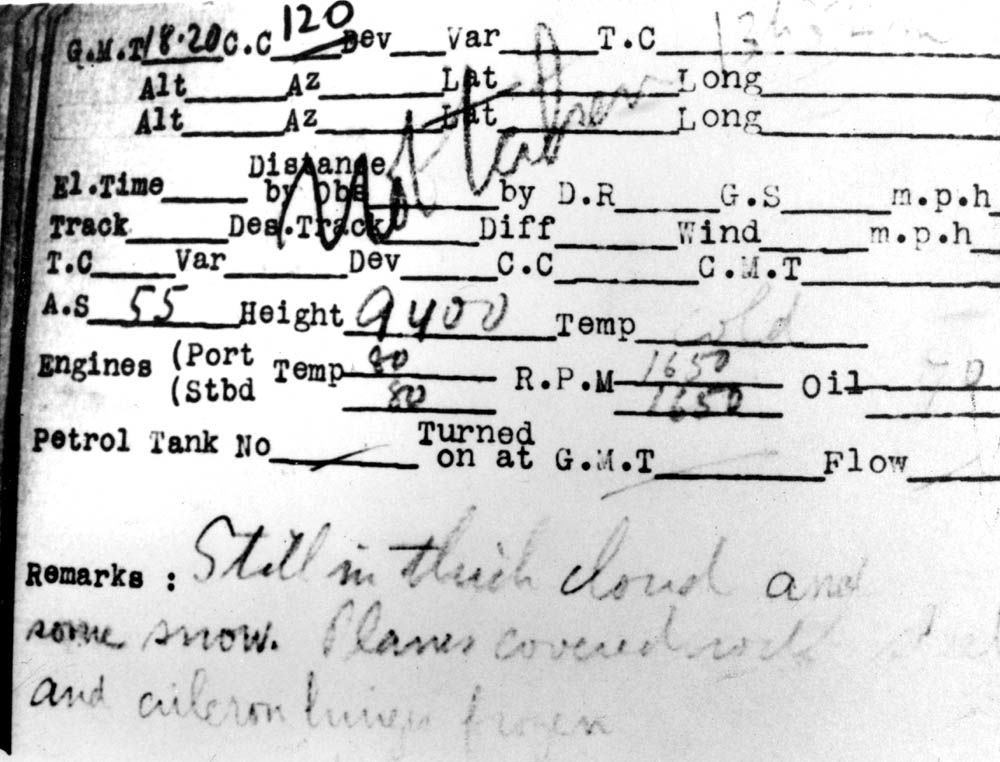 G.M.T 18.20 C.C 120 Dev Var T.C
Alt Az Lat Long
Alt Az Lat Long
Not taken
Distance
El.Time by Obs by D.R G.S m.p.h
Track Des.Track Diff Wind m.p.h
T.C Var Dev C.C G.M.T
A.S 55 Height 9400 Temp cold
Engines (Port Temp 80 R.P.M 1650 Oil
(Stbd 80 1650
Petrol Tank No Turned
on at G.M.T Flow
Remarks : Still in thick cloud and
some snow. Planes covered with
and aileron hinges frozen